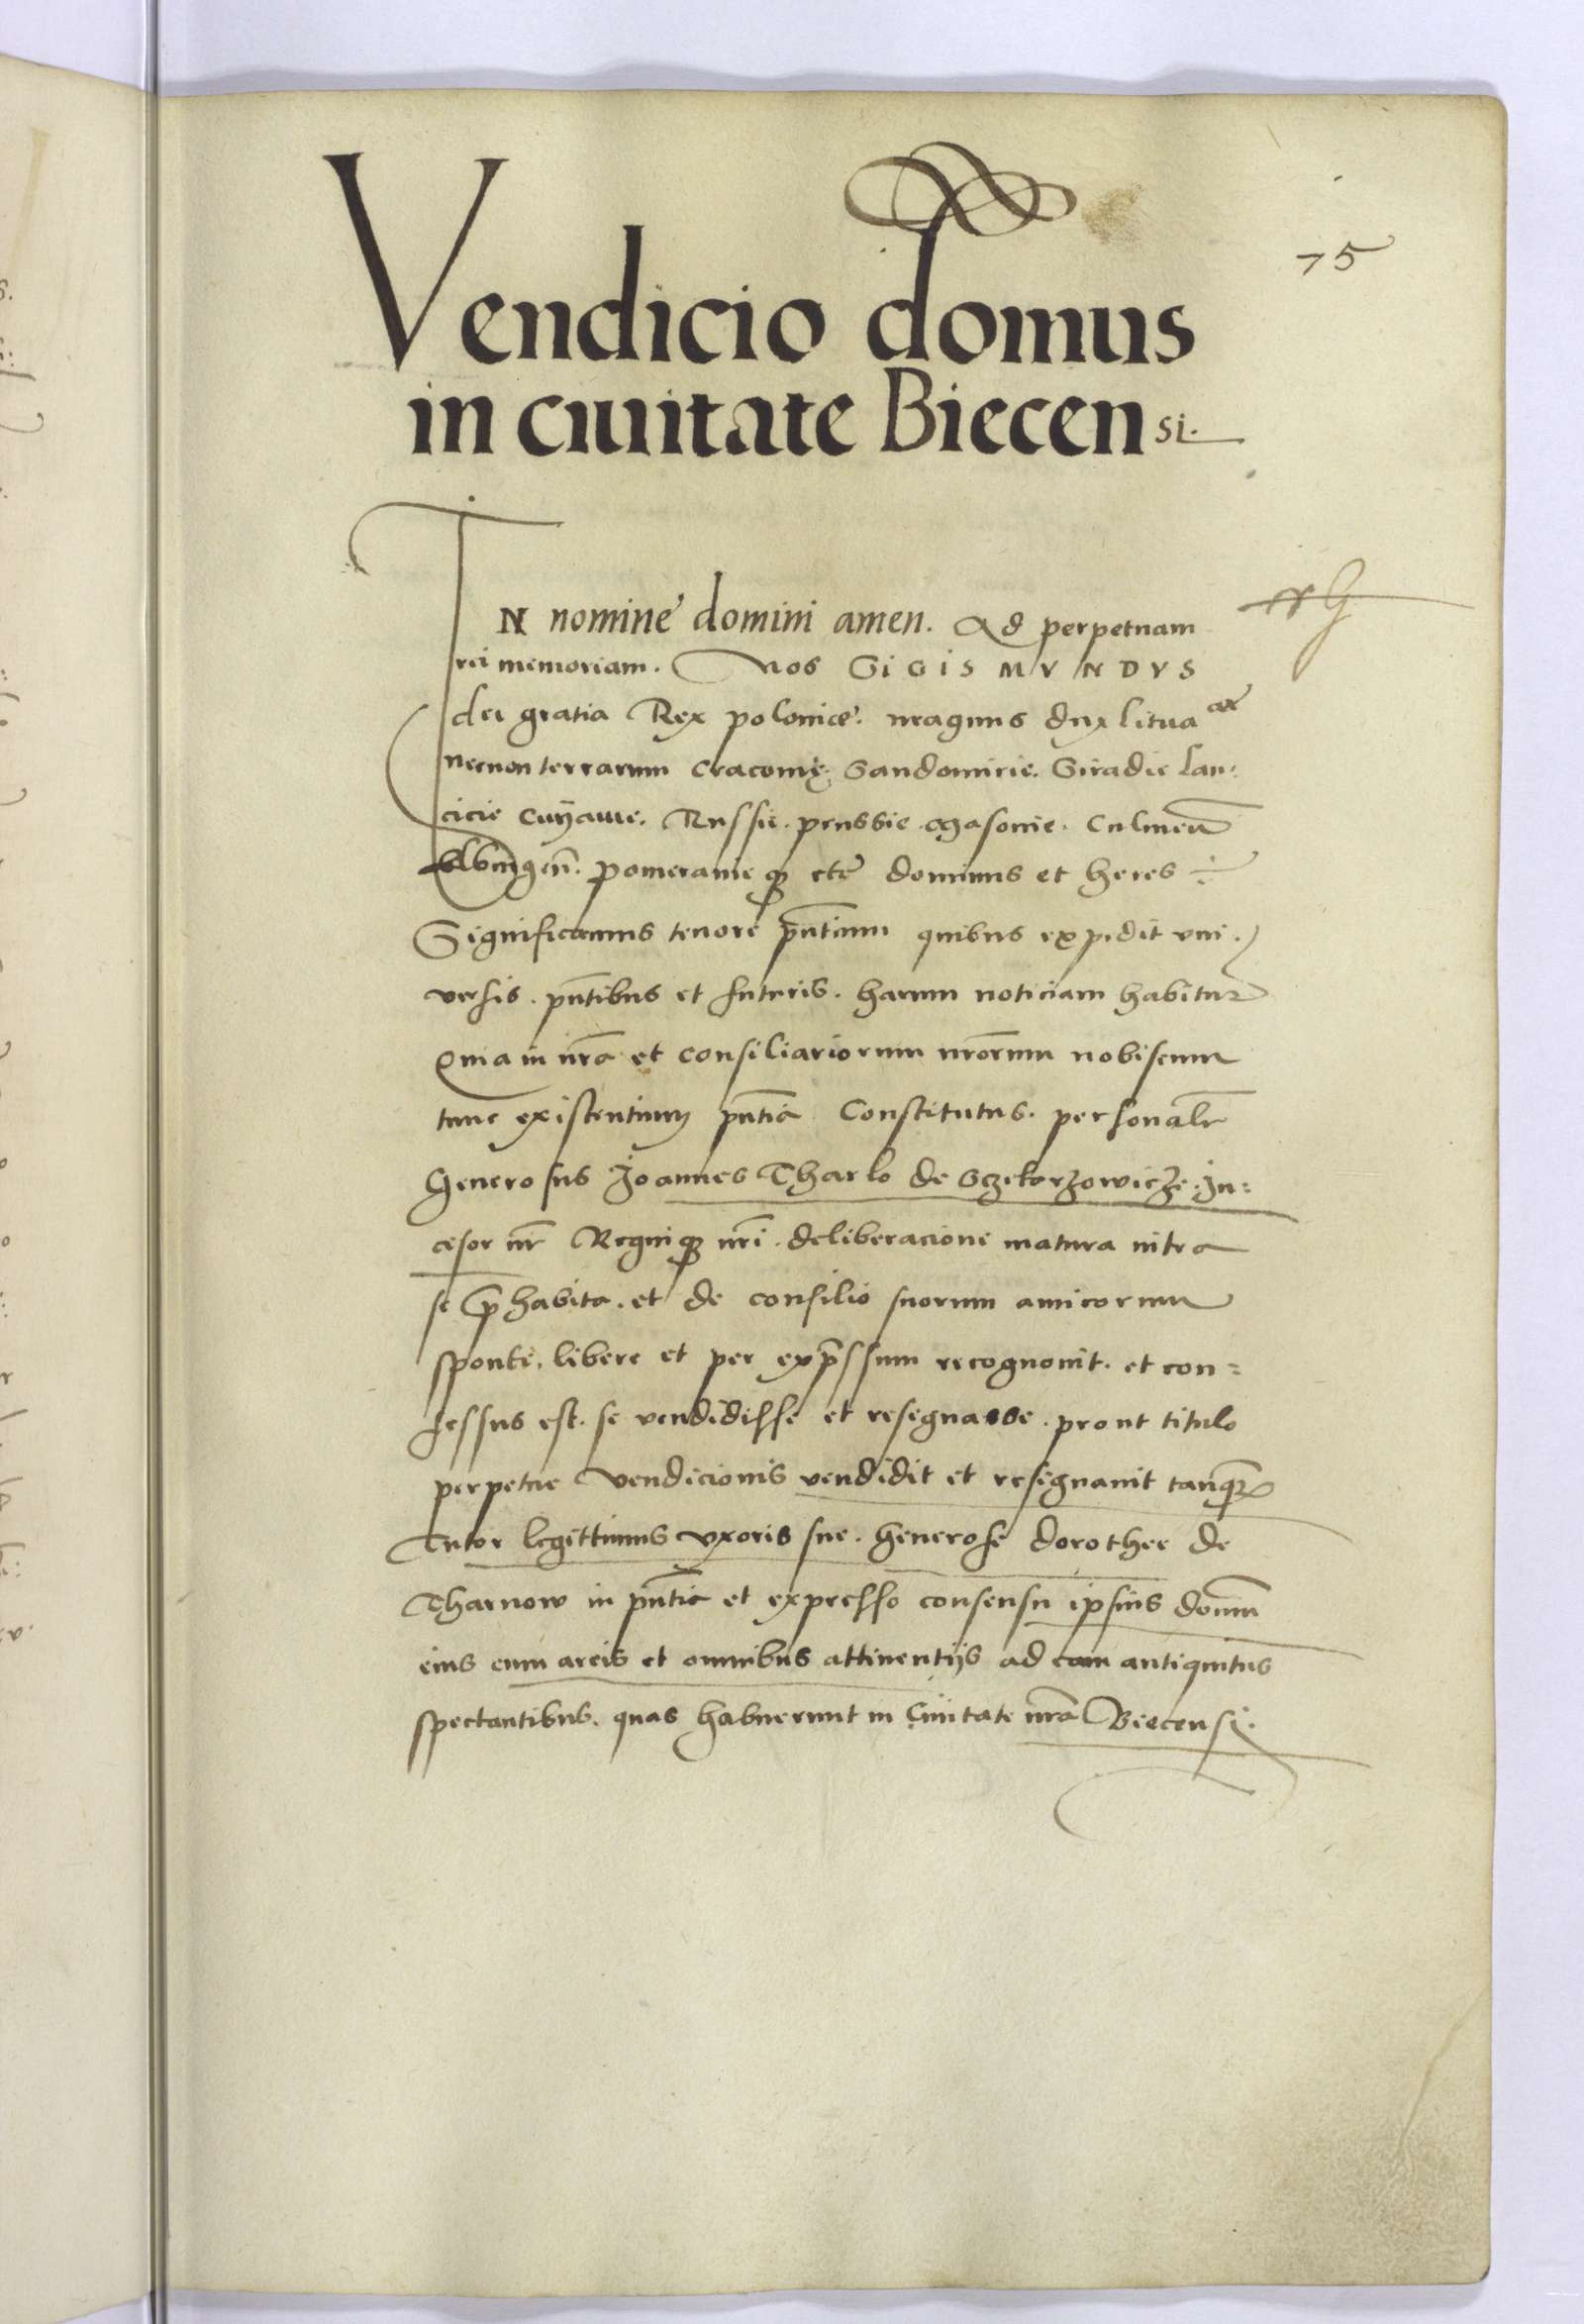 75
Vendicio domus
in ciuitate Biecensi.
IN nomine domini amen. Ad perpetuam
rei memoriam. Nos SIGISMVNDVS
dei gratia Rex polonie. magnus dux lituaāe
necnon terrarum Cracouię. Sandomirie. Siradie lan:
cicie Cuÿauie. Russie. prussie. Masouie. Culmen̄
Elbingen̄. pomeranieqꝫ etc̄ dominus et heres
Significamus tenore pn̄tium quibus expedit vni.
versis. pn̄tibus et futuris. harum noticiam habitur̄
Quia in nrā et consiliariorum nrōrum nobiscum
tunc existentium pn̄tia Constitutus. personalr̄
Generosus Joannes Tharlo de Sczekorzowicze. In:
cisor nr̄ Regniqꝫ nrī. deliberacione matura intra
se p̄habita. et de consilio suorum amicorum
sponte. libere et per exp̄ssum recognouit. et con=
fessus est. se vendidisse et resignasse. prout titulo
perpetue vendicionis vendidit et resignauit tanq̄ꝫ
Tutor legittimus vxoris sue. Generose dorothee de
Tharnow in pn̄tia et expresso consensu ipsius domū
eius cum areis et omnibus attinentijs ad eam antiquitus
spectantibus. quas habuerunt in Ciuitate nrā Biecensi.